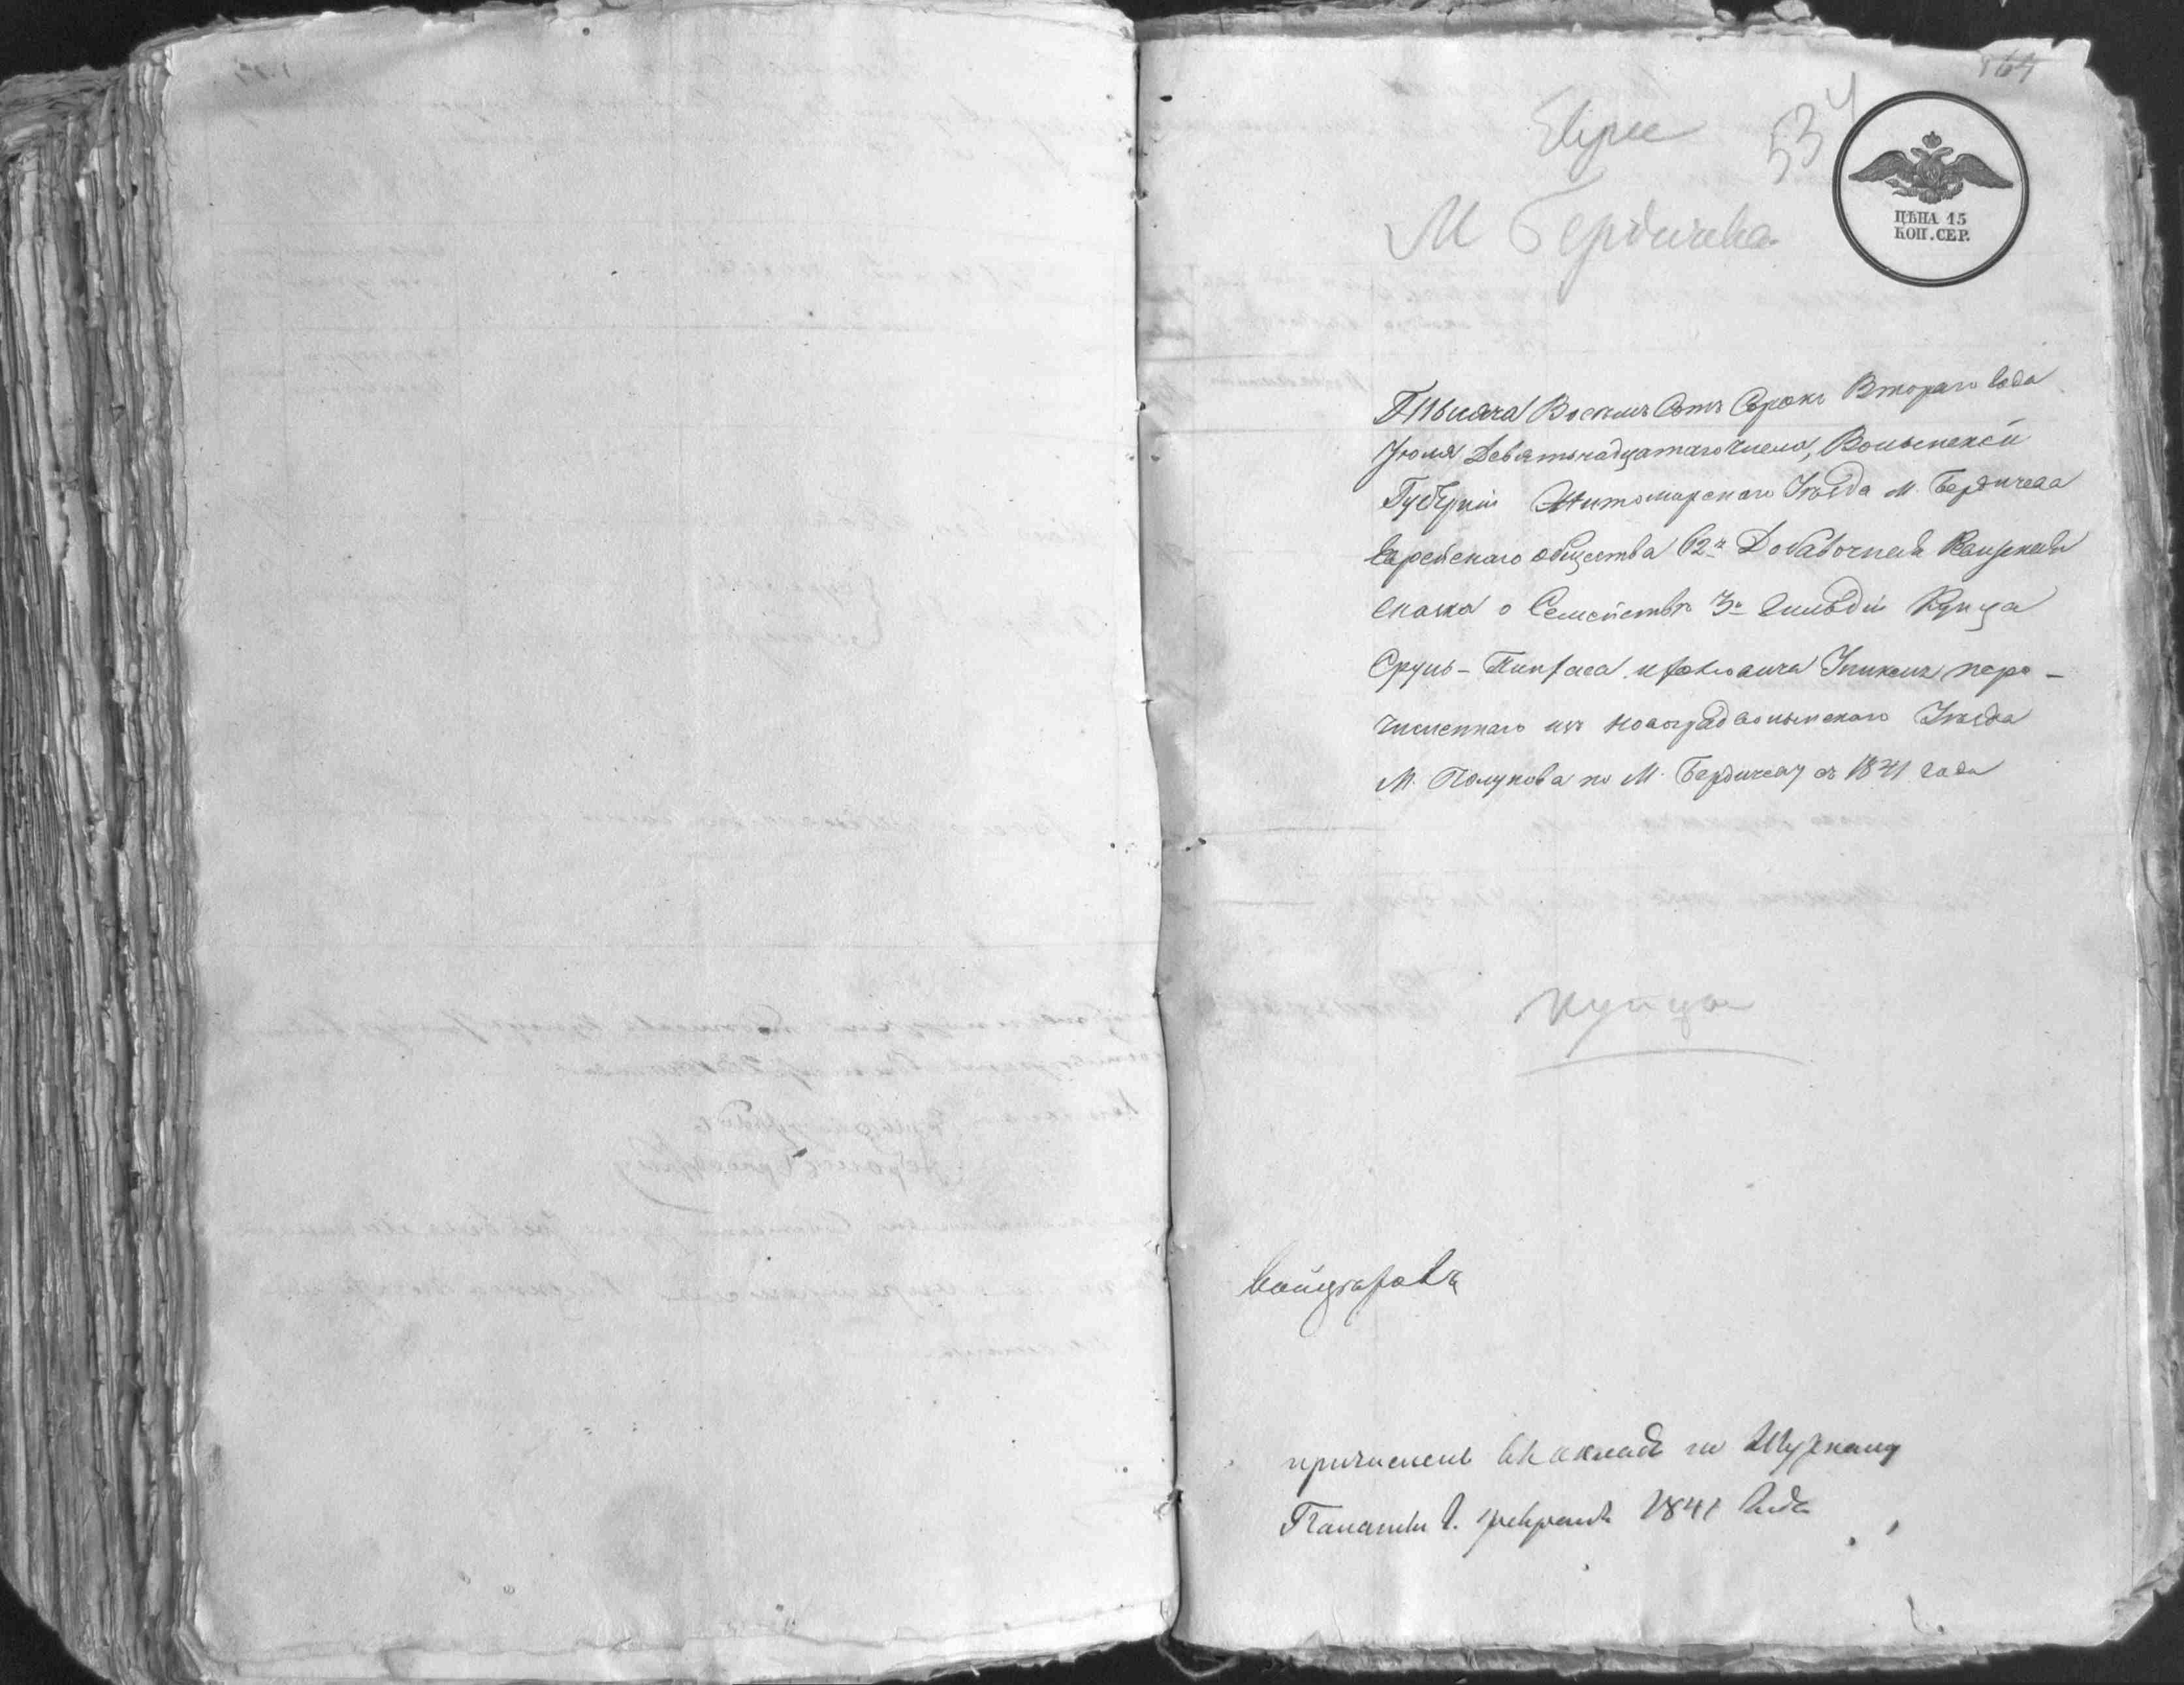 Евреи
534
М Бердичева
ЦѢНА 15
КОП. СЕР.
Тысяча Восемь Сотъ Сорокъ Втораго Года
Іюля Девятьнадцатаго числа, Волынской
Губерніи Житомирскаго Уѣзда м. Бердичева
Еврейскаго общества 62я Добавочная Ревизская
сказка о Семействѣ 3й Гильдіи Купца
Сруль-Пинхаса перe-
численнаго изъ Новоградволынскаго Уѣзда
М. Полунова по М. Бердичеву съ 1841 года
Купцы
причислены въ окладъ по
Палаты 1841 года